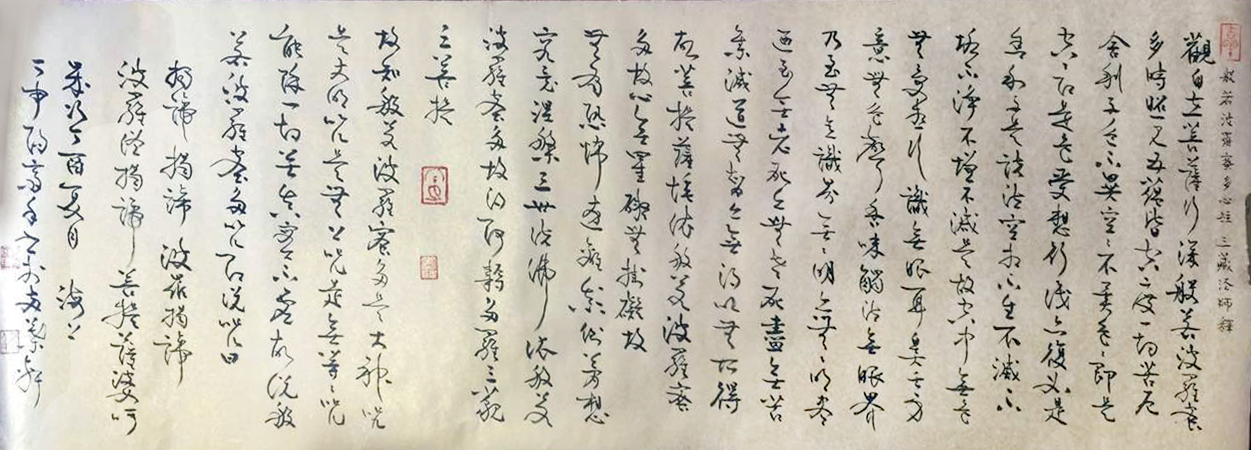 般若波羅蜜多心經 三藏法師譯
觀自在菩薩行深般若波羅蜜
多時照見五蘊皆空度一切苦厄
舍利子色不異空空不異色色即是
空空即是色受想行識亦復如是
舍利子是諸法空相不生不滅不
垢不淨不增不減是故空中無色
無受想行識無眼耳鼻舌身
意無色聲香味觸法無眼界
乃至無意識界無無明亦無無明盡
乃至無老死亦無老死盡無苦
集滅道無智亦無得以無所得
故菩提薩埵依般若波羅蜜
多故心無罣礙無掛礙故
無有恐怖遠離顛倒夢想
究竟涅槃三世諸佛依般若
波羅蜜多故得阿耨多羅三藐
三菩提
故知般若波羅蜜多是大神咒
是大明咒是無上咒是無等等咒
能除一切苦真實不虛故說般
若波羅蜜多咒即說咒曰
揭諦揭諦 波羅揭諦
波羅僧揭諦 菩提薩婆訶